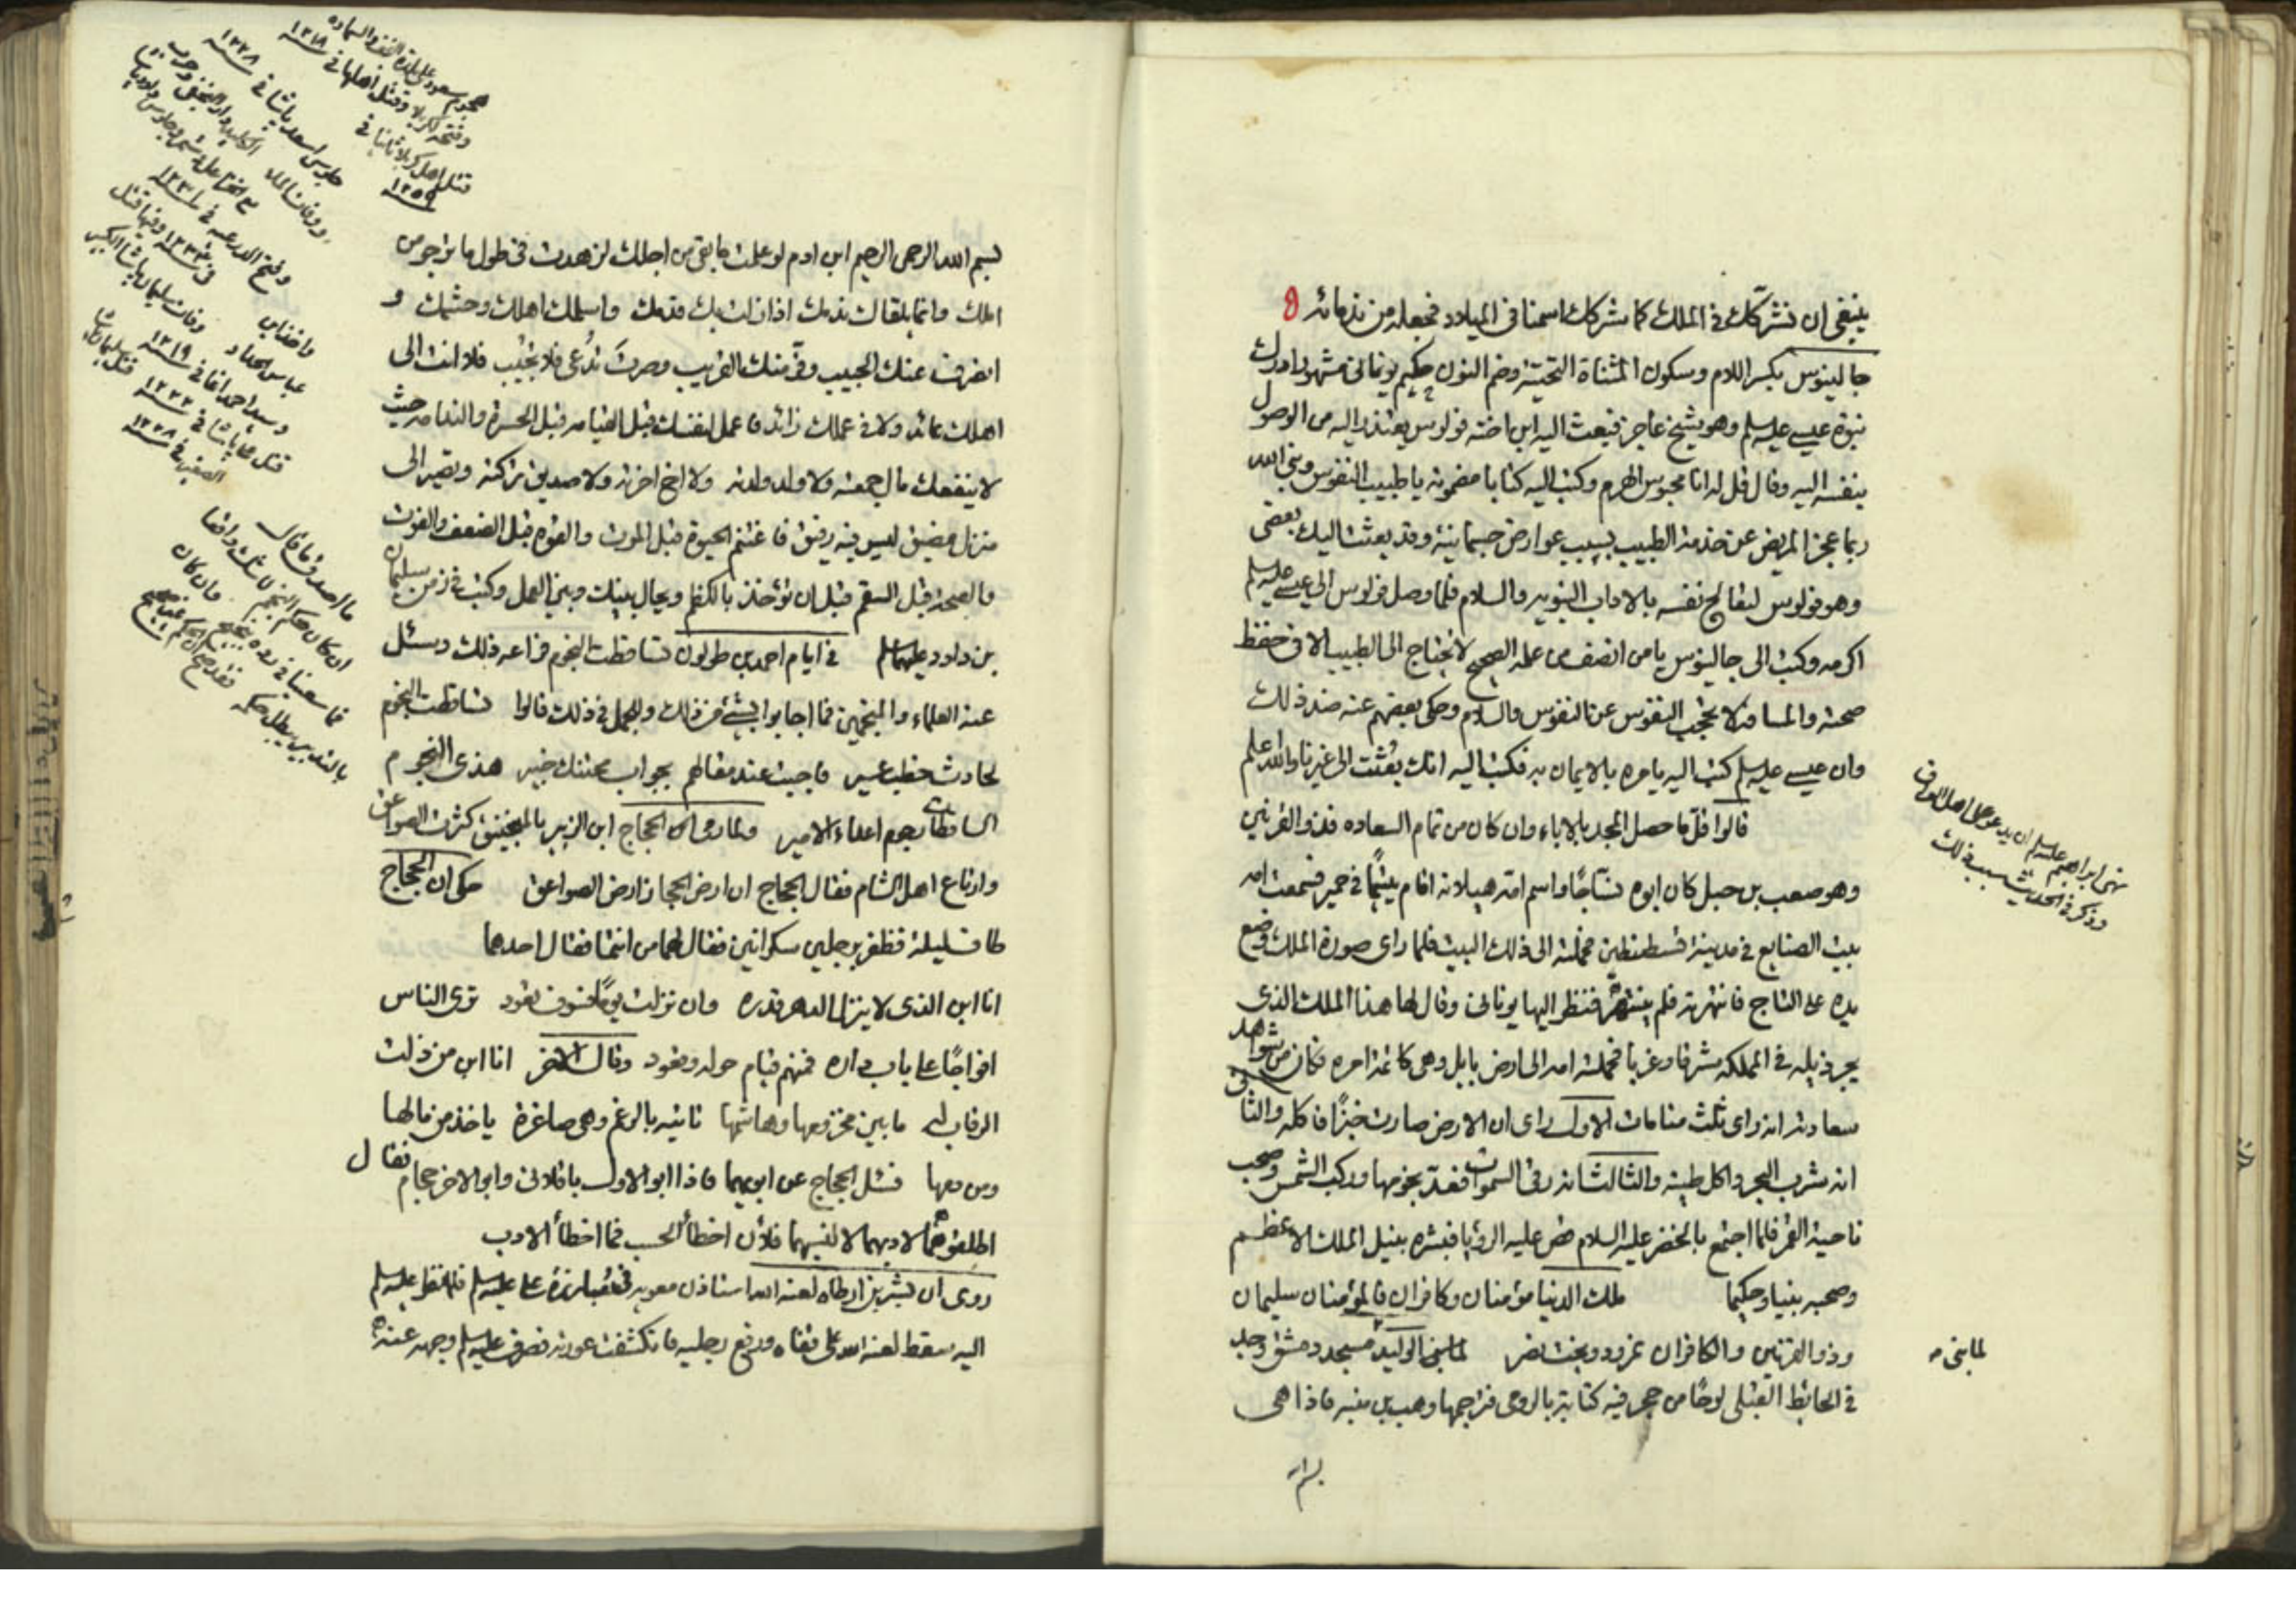 ينبغي ان نشركك في الملك كما نشركك اسمنا في الميلاد فجعله من ندمائه
جالينوس بكسر اللام وسكون المثناة التحتية وضم النون حكيم يوناني مشهور ادرك
نبوة عيسى عليه السلم وهو شيخ عاجز فبعث اليه ابن اخته فولوس يعتذر اليه من الوصول
بنفسه اليه وقال قل له انا محبوس الهرم وكتب اليه كتابا مضمونه يا طبيب النفوس ونبي الله
ربما عجز المريض عن خدمة الطبيب بسبب عوارض جسمانية وقد بعثت اليك بعضي
وهو فولوس لتعالج نفسه بالاداب النبويه والسلام فلما وصل فولوس الى عيسى عليه السلم
اكرمه وكتب الى جالينوس يا من انصف من علمه الصحيح لا يحتاج الى الطبيب الا في حفظ
صحته والمسافة لا تحجب النفوس عن النفوس والسلام وحكى بعضهم عنه ضد ذلك
وان عيسى عليه السلم كتب اليه يامره بالايمان به فكتب اليه انك بعثت الى غيرنا والله اعلم
قالوا قل ما حصل المجد بالاباء وان كان من تمام السعاده فذو القرنين
وهو صعب بن جبل كان ابوه نساجًا واسم امه هيلانه اقام يتيمًا في حمير فسمعت امه
ببيت الصنايع في مدينة قسطنطين فحملته الى ذلك البيت فلما راى صورة الملك وضع
يده على التاج فانتهرته فلم ينته فنظر اليها يونانى وقال لها هذا الملك الذى
يجر ذيله في المملكه شرقا وغربا فحملته امه الى ارض بابل وهى كاتمة امره فكان من شواهد
سعادته انه راى ثلث منامات الاول راى ان الارض صارت خبزًا فاكله والثانى
انه شرب البحر واكل طينه والثالث انه رقى السموات فعد نجومها وركب الشمس وصحب
ناحية القمر فلما اجتمع بالخضر عليه السلام قص عليه الرؤيا فبشره بنيل الملك الاعظم
وصحبه نبيا وحكيما ملك الدنيا مؤمنان وكافران فالمؤمنان سليمان
وذو القرنين والكافران نمرود وبخت نصر لما بنى الوليد مسجد دمشق وجد
في الحائط القبلى لوحًا من حجر فيه كتابة بالرومى فترجمها وهب بن منبه فاذا هى
نهى ابراهيم عليه السلم ان يدعو على اهل العراق
وذكر في الحديث سبب ذلك
لما بنى
بسم الله الرحمن الرحيم ابن ادم لو علمت ما بقى من اجلك لزهدت في طول ما ترجو من
املك وانما يلقاك ندمك اذا زلت بك قدمك واسلمك اهلك وحشمك و
انصرف عنك الحبيب وفر منك القريب وصرت تدعى فلا تجيب فلا انت الى
اهلك عائد ولا في عملك زائد فاعمل لنفسك قبل القيامه قبل الحسرة والندامه حيث
لا ينفعك مال جمعته ولا ولد ولدته ولا اخ اخرته ولا صديق تركته وتصير الى
منزل مضيق ليس فيه رفيق فاغتنم الحيوة قبل الموت والقوة قبل الضعف والفوت
والصحة قبل السقم قبل ان تؤخذ بالكظم ويحال بينك وبين العمل وكتب في زمن سليمان
بن داود عليهما السلم في ايام احمد بن طولون تساقطت النجوم فراعه ذلك وسئل
عنه العلماء والمنجمين فما اجابوا بشئ عن ذلك والجمل في ذلك قالوا تساقطت النجوم
لحادث خطب عسير فاجبت عند مقالهم بجواب محتنك خبير هذى النجوم
الساقطات نجوم اعداء الامير ولما رمى الحجاج ابن الزبير بالمنجنيق كثرت الصواعق
وارتاع اهل الشام فقال الحجاج ان ارض الحجاز ارض الصواعق حكى ان الحجاج
طاف ليلة فظفر برجلين سكرانين فقال لهما من انتما فقال احدهما
انا ابن الذى لا ينزل الدهر قدره وان نزلت يومًا فسوف تعود ترى الناس
افواجًا على باب داره فمنهم قيام حوله وقعود وقال الاخر انا ابن من ذلت
الرقاب له ما بين مخزومها وهاشمها تاتيه بالرغم وهى صاغرة ياخذ من مالها
ومن دمها فسئل الحجاج عن ابويهما فاذا ابو الاول باقلانى وابو الاخر حجام فقال
اطلقوهما لادبهما لا لنسبهما فلان اخطأ الحسب فما اخطأ الادب
روى ان بشر بن ارطاه لعنه الله استاذن معويه في مبارزة على عليه السلم فلما عليه السلم
اليه سقط لعنه الله على قفاه ورفع رجليه فانكشفت عورته فصرف عليه السلم وجهه عنه
هجوم سعود على
وفتحه لكربلا وقتل اهلها في سنة ١٢١٨
قتل اهل كربلا ثانيا في ١٢٥٩
جلوس اسعد پاشا في سنة ١٢٢٨
وفتح الدرعيه في
عباس الحداد وفات سليمان پاشا الكبير
وسيد احمد اغا في ١٢١٩
قتل على پاشا في سنة ١٢٢٢ قتل سليمان پاشا
الصغير في سنة ١٢٢٨
ما اصدق ما قال
ان كان حكم النجم لا شك واقعا
فما سعينا في رده بنجيح وان كان
بالتدبير يبطل حكمه فقد صح ان الحكم غير صحيح